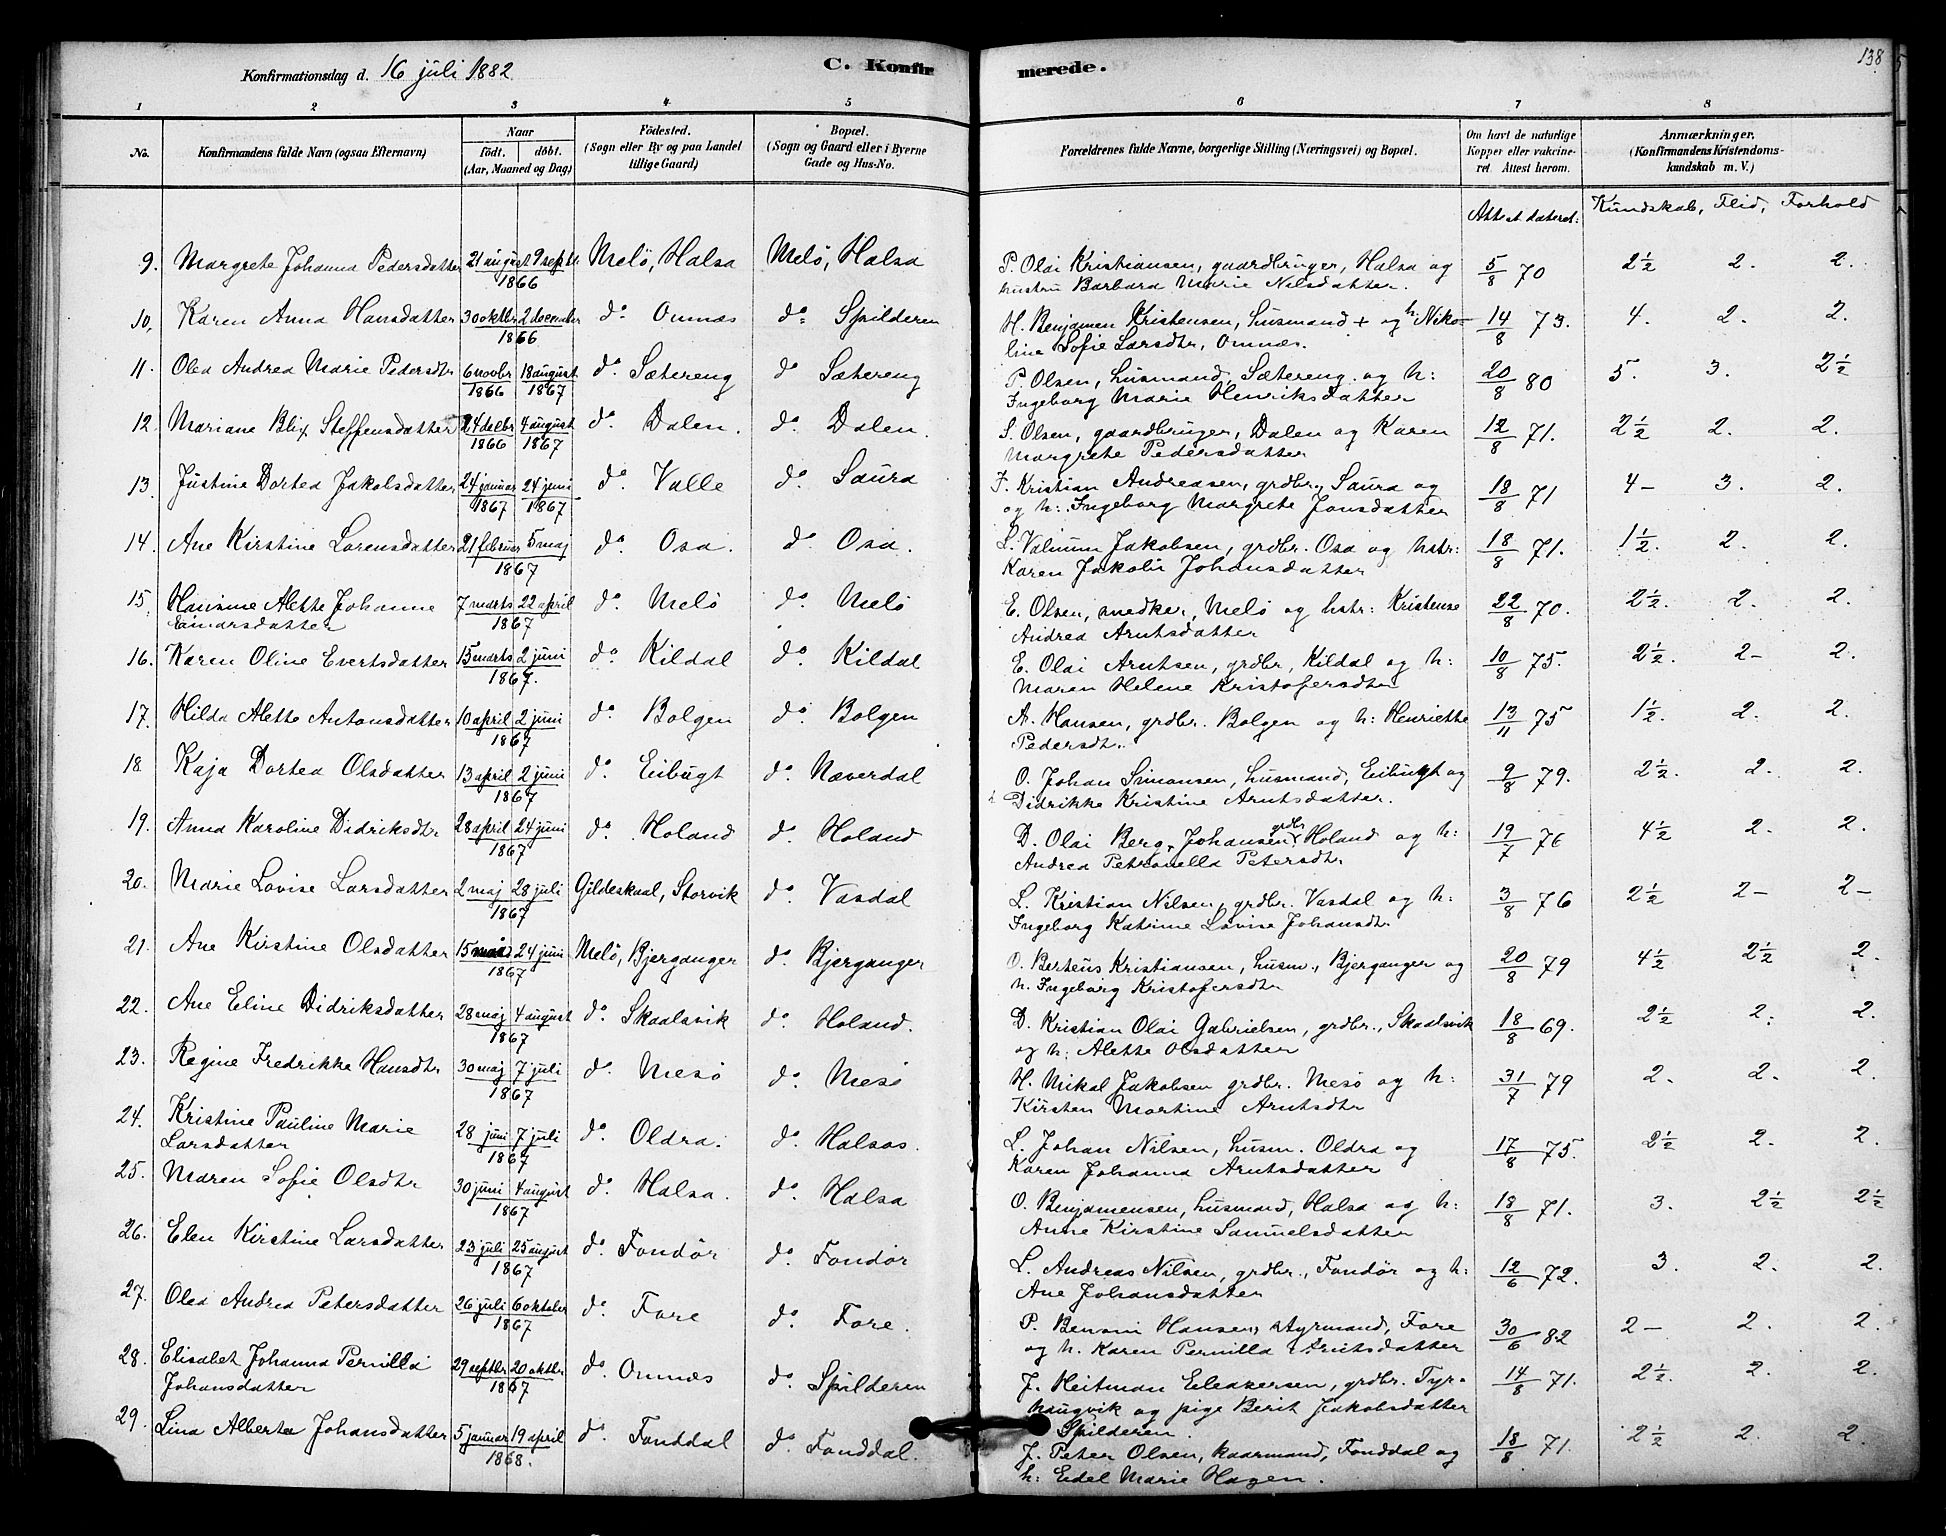 Konfirmationsdag d. 16 juli 1882
C. Konfirmerede.
138
1 2 3 4 5 6 7 8
No.
Konfirmandens fulde Navn (ogsaa Efternavn)
Naar
födt. döbt.
(Aar, Maaned og Dag)
Födested.
(Sogn eller By og paa Landet
tillige Gaard)
Bopæl.
(Sogn og Gaard eller i Byerne
Gade og Hus-No.
Forældrenes fulde Navne, borgerlige Stilling (Næringsvei) og Bopæl.
Om havt de naturlige
Kopper eller vakcine-
ret Attest herom.
Anmærkninger,
(Konfirmandens Kristendoms-
kundskab m. V.)
Attest dateret: Kundskab, Flid, Forhold
9. Margrete Johanna Pedersdatter 21 august 9 septb. 1866 Melö, Halsa Melö, Halsa P. Olai Kristiansen, gaardbruger, Halsa og 5/8 70 2½ 2. 2.
hustru Barbara Marie Nilsdatter.
10. Karen Anna Hansdatter 30 oktbr 2 december 1866 do. Ornnæs do. Spilderen H. Benjamen Kristensen, husmand + og h. Niko- 14/8 73. 4. 2. 2.
line Sofie Larsdtr, Ornnæs.
11. Olea Andrea Marie Pedersdtr 6 novbr 1866 18 august 1867 do Sætereng do Sætereng P. Olsen, husmand, Sætereng. og h: 20/8 80 5. 3. 2½
Ingeborg Marie Henriksdatter
12. Mariane Blix Steffensdatter 24 decbr 1866 4 august 1867 do Dalen. do Dalen. S. Olsen, gaardbruger, Dalen og Karen 12/8 71. 2½ 2. 2.
Margrete Pedersdatter
13. Justine Dortea Jakobsdatter 24 januar 1867 24 juni 1867 do Valle do Saura J. Kristian Andreasen, grdbr., Saura og 18/8 71 4- 3. 2.
og h: Ingeborg Margrete Jonsdatter
14. Ane Kirstine Lorensdatter 21 februar 5 maj 1867 do. Osa. do. Osa. L. Valnum Jakobsen, grdbr. Osa og hstr: 18/8 71. 1½. 2. 2.
Karen Jakobi Johansdatter
15. Hansine Alette Johanne 7 marts 22 april 1867 do. Melö do. Melö E. Olsen, snedker, Melö og hstr: Kristense 22/8 70. 2½. 2. 2.
Einarsdatter Andrea Arntsdatter
16. Karen Oline Evertsdatter 15 marts 2 juni 1867. do. Kildal do. Kildal E. Olai Arntsen, grdbr, Kildal og h: 10/8 75. 2½. 2- 2.
Maren Helene Kristofersdtr
17. Hilda Alette Antonsdatter 10 april 2 juni 1867 do. Bolgen do. Bolgen A. Hansen, grdbr. Bolgen og h: Henriette 13/11 75 1½. 2. 2.
Pedersdtr.
18 Kaja Dortea Olsdatter 13 april 2 juni 1867 do. Eibugt do. Næverdal O. Johan Simonsen, husmand, Eibugt og 9/8 79. 2½. 2. 2.
Didrikke Kristine Arntsdatter.
19. Anna Karoline Didriksdtr 28 april 24 juni 1867 do. Holand do. Holand D. Olai Berg, Johansen, grdbr Holand og h: 19/7 76 4½ 2. 2.
Andrea Petronella Petersdtr
20. Marie Lovise Larsdatter 2 maj 28 juli 1867 Gildeskaal, Storvik do. Vasdal L. Kristian Nilsen, grdbr. Vasdal og h: 3/8 76 2½ 2- 2-
Ingeborg Katrine Lovise Johansdtr.
21. Ane Kirstine Olsdatter 15 24 juni 1867 Melö, Bjerganger do. Bjerganger O. Berteus Kristiansen, husm., Bjerganger og 20/8 79 4½ 2½ 2.
h. Ingeborg Kristofersdtr
22. Ane Eline Didriksdatter 28 maj 4 august 1867 do. Skaalsvik do. Holand. D. Kristian Olai Gabrielsen, grdbr., Skaalsvik 18/8 69. 2½ 2. 2.
og h. Alette Olsdatter
23. Regine Fredrikke Hansdtr 30 maj 7 juli 1867 do. Mesö do. Mesö H. Mikal Jakobsen grdbr. Mesö og h: 31/7 79 2. 2. 2.
Kirsten Martine Arntsdtr
24. Kristine Pauline Marie 28 juni 7 juli 1867 do. Oldra. do. Halsos. L. Johan Nilsen, husm. Oldra og 17/8 75. 2½ 2. 2.
Larsdatter Karen Johanna Arntsdatter
25. Maren Sofie Olsdtr 30 juni 4 august 1867 do. Halsa. do. Halsa O. Benjamensen, husmand, Halsa og h: 18/8 71. 3. 2½ 2½
Anne Kirstine Samuelsdatter
26. Elen Kirstine Larsdatter 23 juli 25 august 1867 do. Fondör do. Fondör L. Andreas Nilsen, grdbr., Fondör og h: 12/6 72. 3. 2. 2.
Ane Johansdatter
27. Olea Andrea Petersdatter 26 juli 6 oktober 1867 do. Fore do. Fore. P. Bensin Hansen, styrmand, Fore 30/6 82 2- 2. 2.
og h. Karen Pernilla Arntsdatter
28. Elisabet Johanna Pernilla 29 septbr 20 oktbr 1867 do. Ornnæs do. Spilderen J. Heitman Eleasersen, grdbr. Tyr- 14/8 71. 2½. 2. 2.
Johansdatter haugvik og pige Berit Jakobsdatter
Spilderen.
29. Lina Alberta Johansdatter 5 januar 19 april 1868. do. Fonddal do. Fonddal. J. Peter Olsen, kaarmand, Fonddal og 18/8 71. 2½ 2. 2.
h: Edel Marie Hagen.